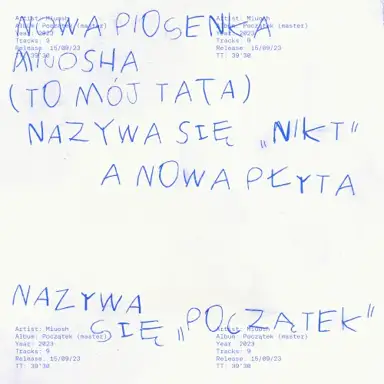 NOWA PIOSENKA
Artist: Miuosh
Album: Początek (master)
Year: 2023
Tracks: 9
Release: 15/09/23
TT: 39'30
Artist: Miuosh
Album: Początek (master)
Year: 2023
Tracks: 9
Release: 15/09/23
TT: 39'30
MIUOSHA
(TO MÓJ TATA)
NAZYWA SIĘ „NIKT"
A NOWA PŁYTA
NAZYWA
SIĘ „POCZĄTEK"
Artist: Miuosh
Album: Początek (master)
Year: 2023
Tracks: 9
Release: 15/09/23
TT: 39'30
Artist: Miuosh
Album: Początek (master)
Year: 2023
Tracks: 9
Release: 15/09/23
TT: 39'30